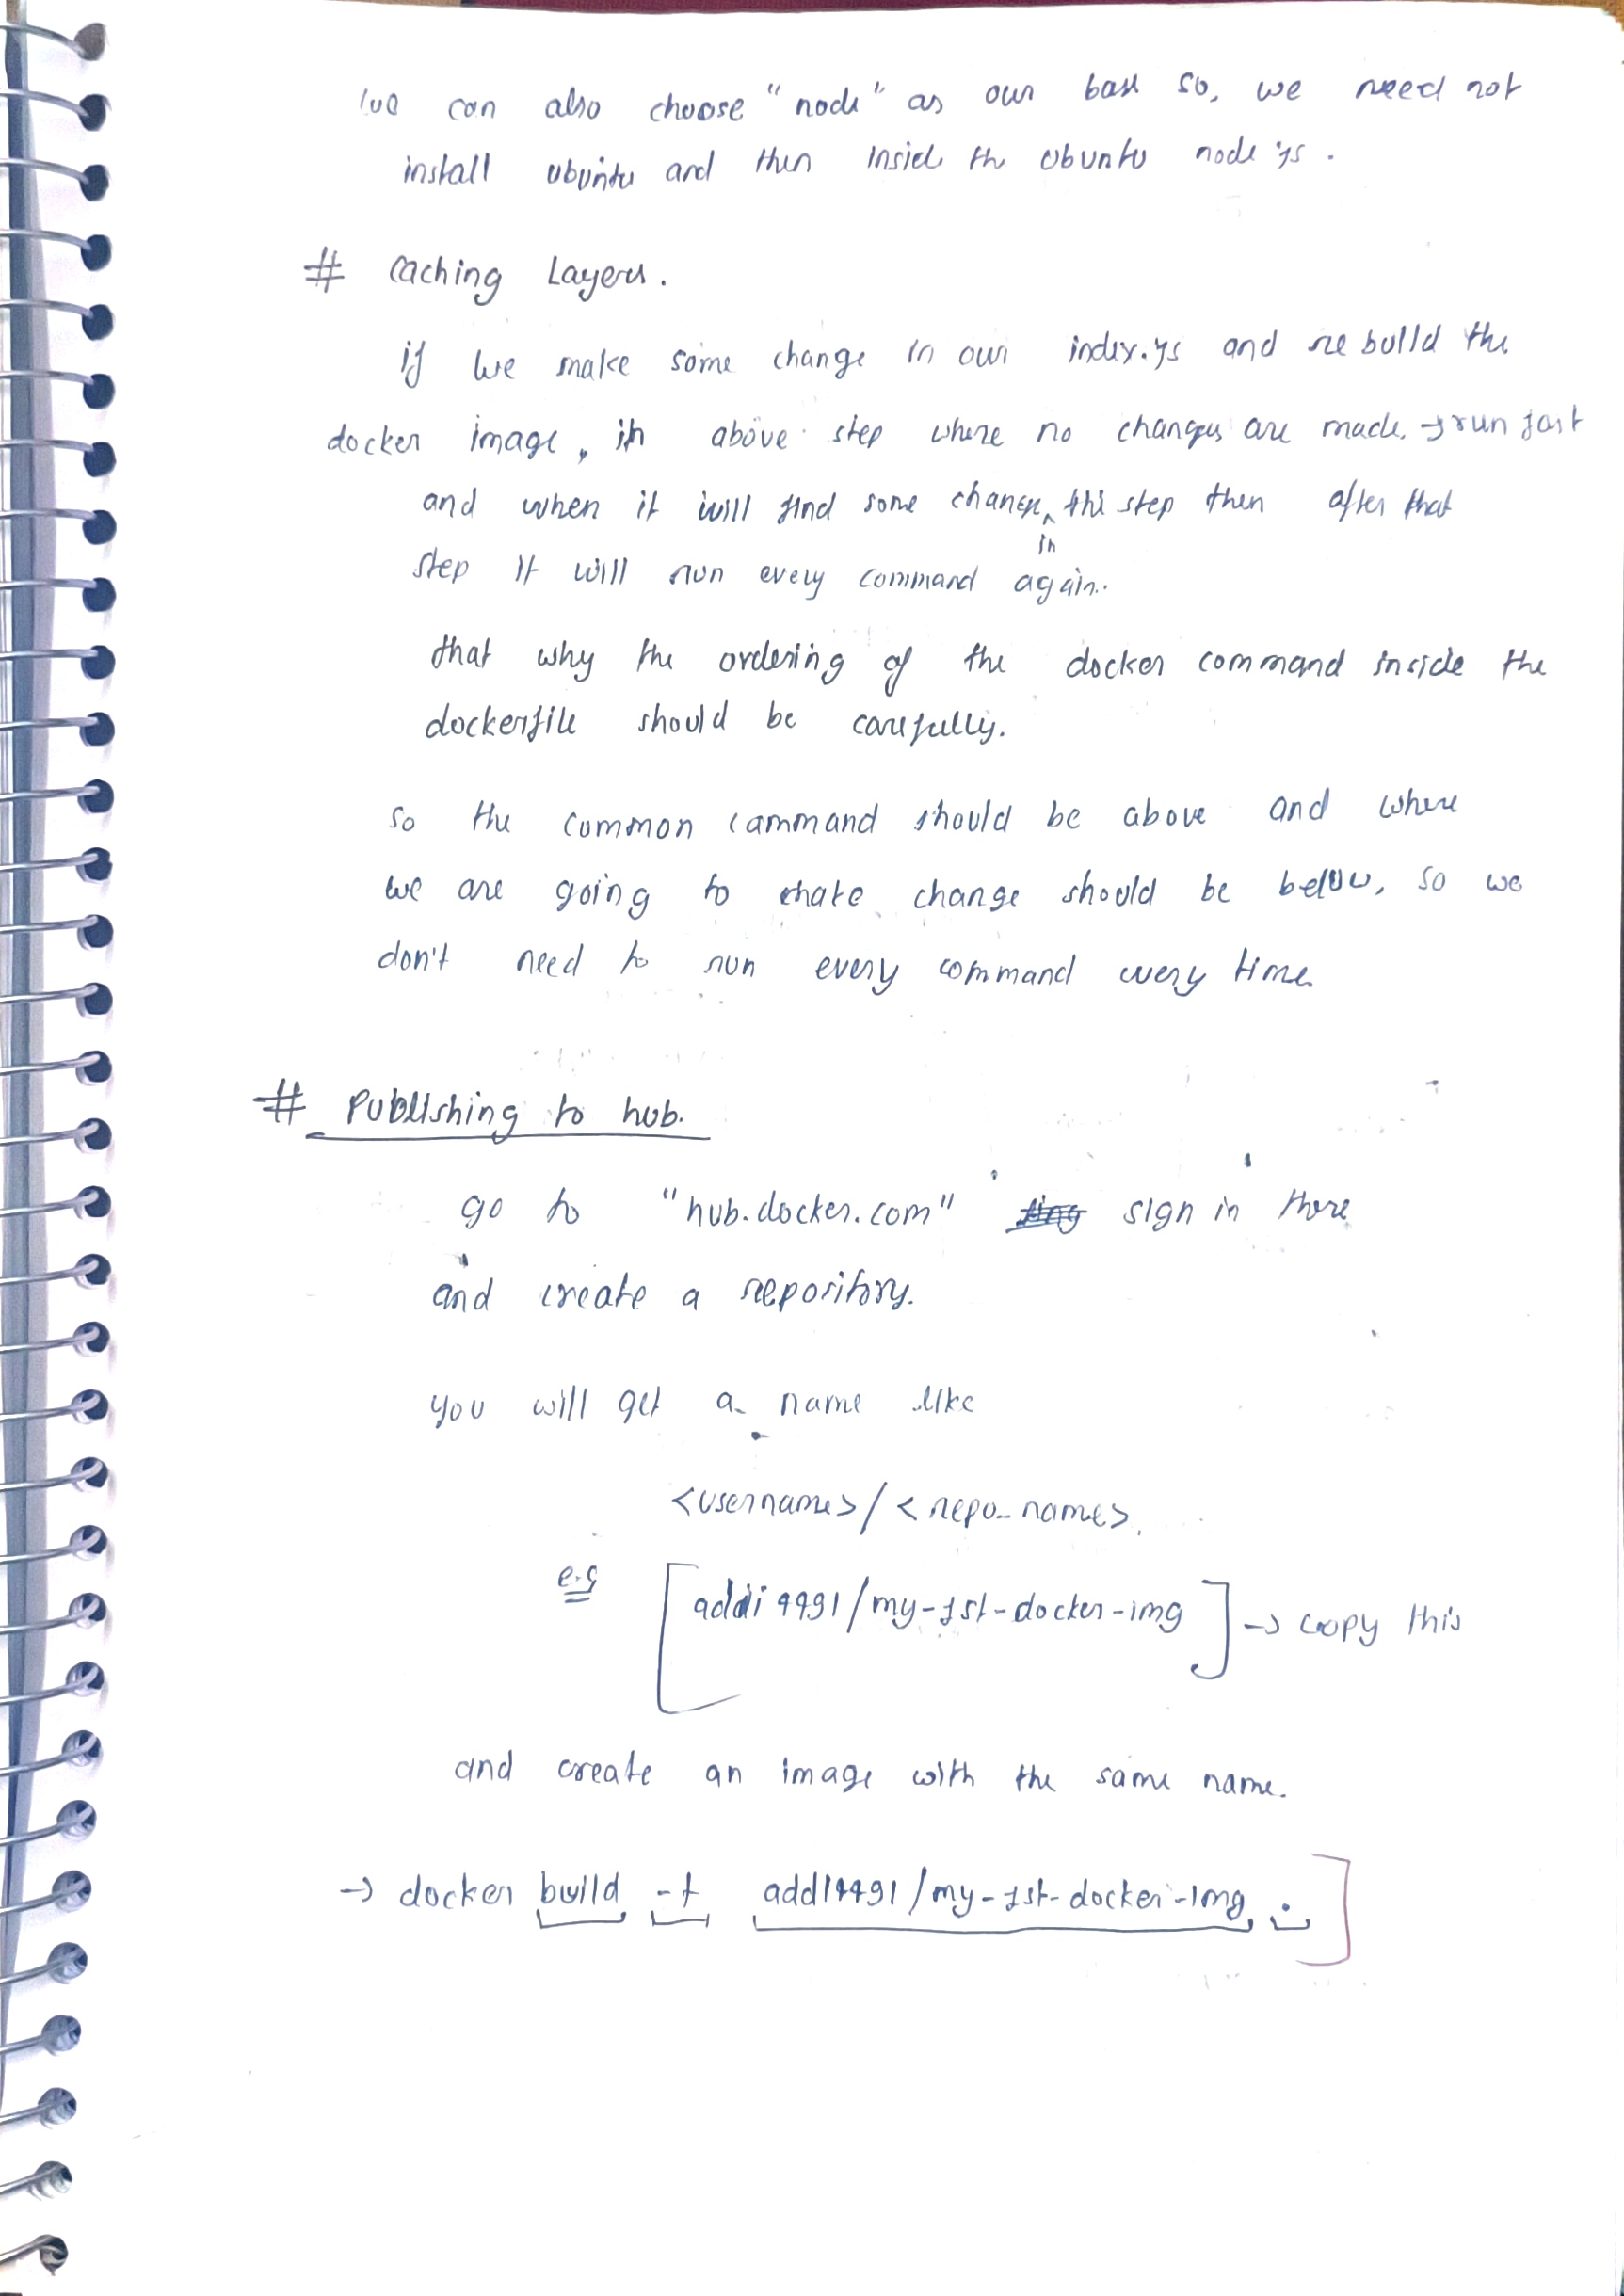 we can also choose "node" as our base so, we need not
install ubuntu and then inside the ubuntu node js.
# Caching Layers.
if we make some change in our index.js and rebuild the
docker image, in above step where no changes are made → run fast
and when it will find some change in this step then after that
step it will run every command again.
that why the ordering of the docker command inside the
dockerfile should be carefully.
so the common command should be above and where
we are going to make change should be below, so we
don't need to run every command every time
# Publishing to hub.
go to "hub.docker.com" sign in there
and create a repository.
you will get a name like
<username>/<repo_name>.
e.g [addi9991/my-1st-docker-img] → copy this
and create an image with the same name.
→ docker build -t addi9991/my-1st-docker-img .]